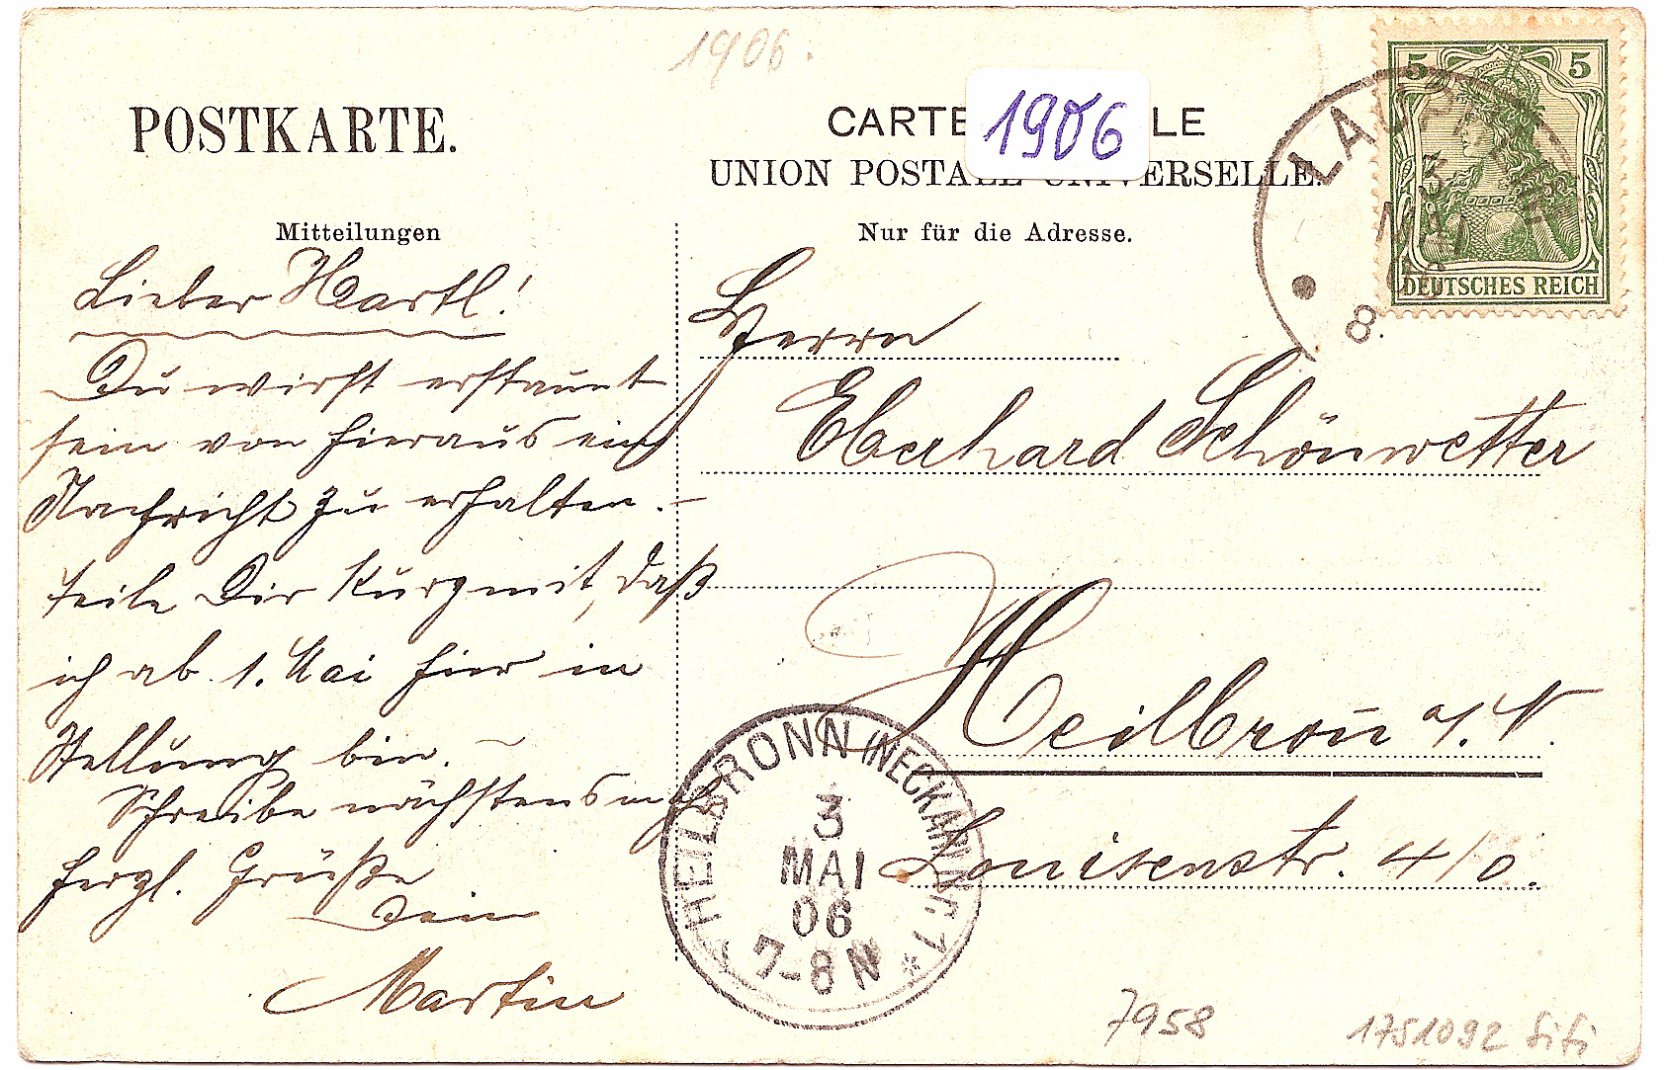 1906.
POSTKARTE.
CARTE LE
1906
UNION POSTALE UNIVERSELLE.
Mitteilungen
Nur für die Adresse.
5 5
DEUTSCHES REICH
3
MAI
8.
Lieber Hartl!
Du wirst erstaunt
sein von hieraus eine
Nachricht zu erhalten. –
Teile Dir kurz mit, daß
ich ab 1. Mai hier in
Stellung bin. –
Schreibe nächstens mehr
Herzl. Grüße
Dein
Martin
Herrn
Eberhard Schönwetter
Heilbron̄ a/. N.
Louisenstr. 4/0.
HEILBRONN (NECKAR) Nr. 1 *
3
MAI
06
7-8 N
7958
1751092 SiSi